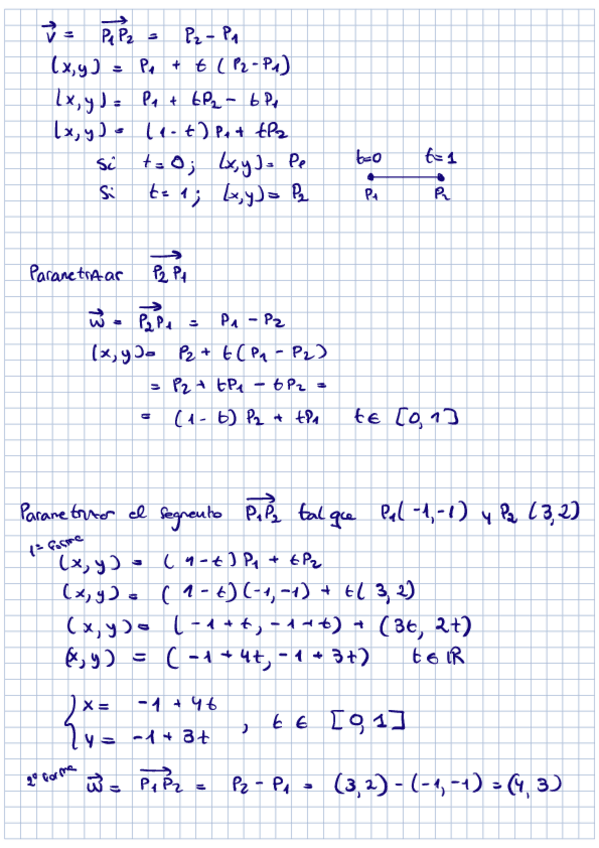 v⃗ = P₁P₂⃗ = P₂ - P₁
(x,y) = P₁ + t (P₂-P₁)
(x,y) = P₁ + tP₂ - tP₁
(x,y) = (1-t) P₁ + tP₂
Si t=0; (x,y) = P₁ t=0 t=1
Si t=1; (x,y) = P₂ P₁ P₂
Parametrizar P₂P₁⃗
w⃗ = P₂P₁⃗ = P₁ - P₂
(x,y) = P₂ + t(P₁ - P₂)
= P₂ + tP₁ - tP₂ =
= (1-t) P₂ + tP₁ t ∈ [0,1]
Parametrizar el segmento P₁P₂⃗ tal que P₁(-1,-1) y P₂ (3,2)
1ª forma
(x,y) = (1-t)P₁ + tP₂
(x,y) = (1-t)(-1,-1) + t(3,2)
(x,y) = (-1+t, -1+t) + (3t, 2t)
(x,y) = (-1+4t, -1+3t) t ∈ ℝ
{ x = -1+4t
y = -1+3t , t ∈ [0,1]
2ª forma w⃗ = P₁P₂⃗ = P₂ - P₁ = (3,2)-(-1,-1) = (4,3)